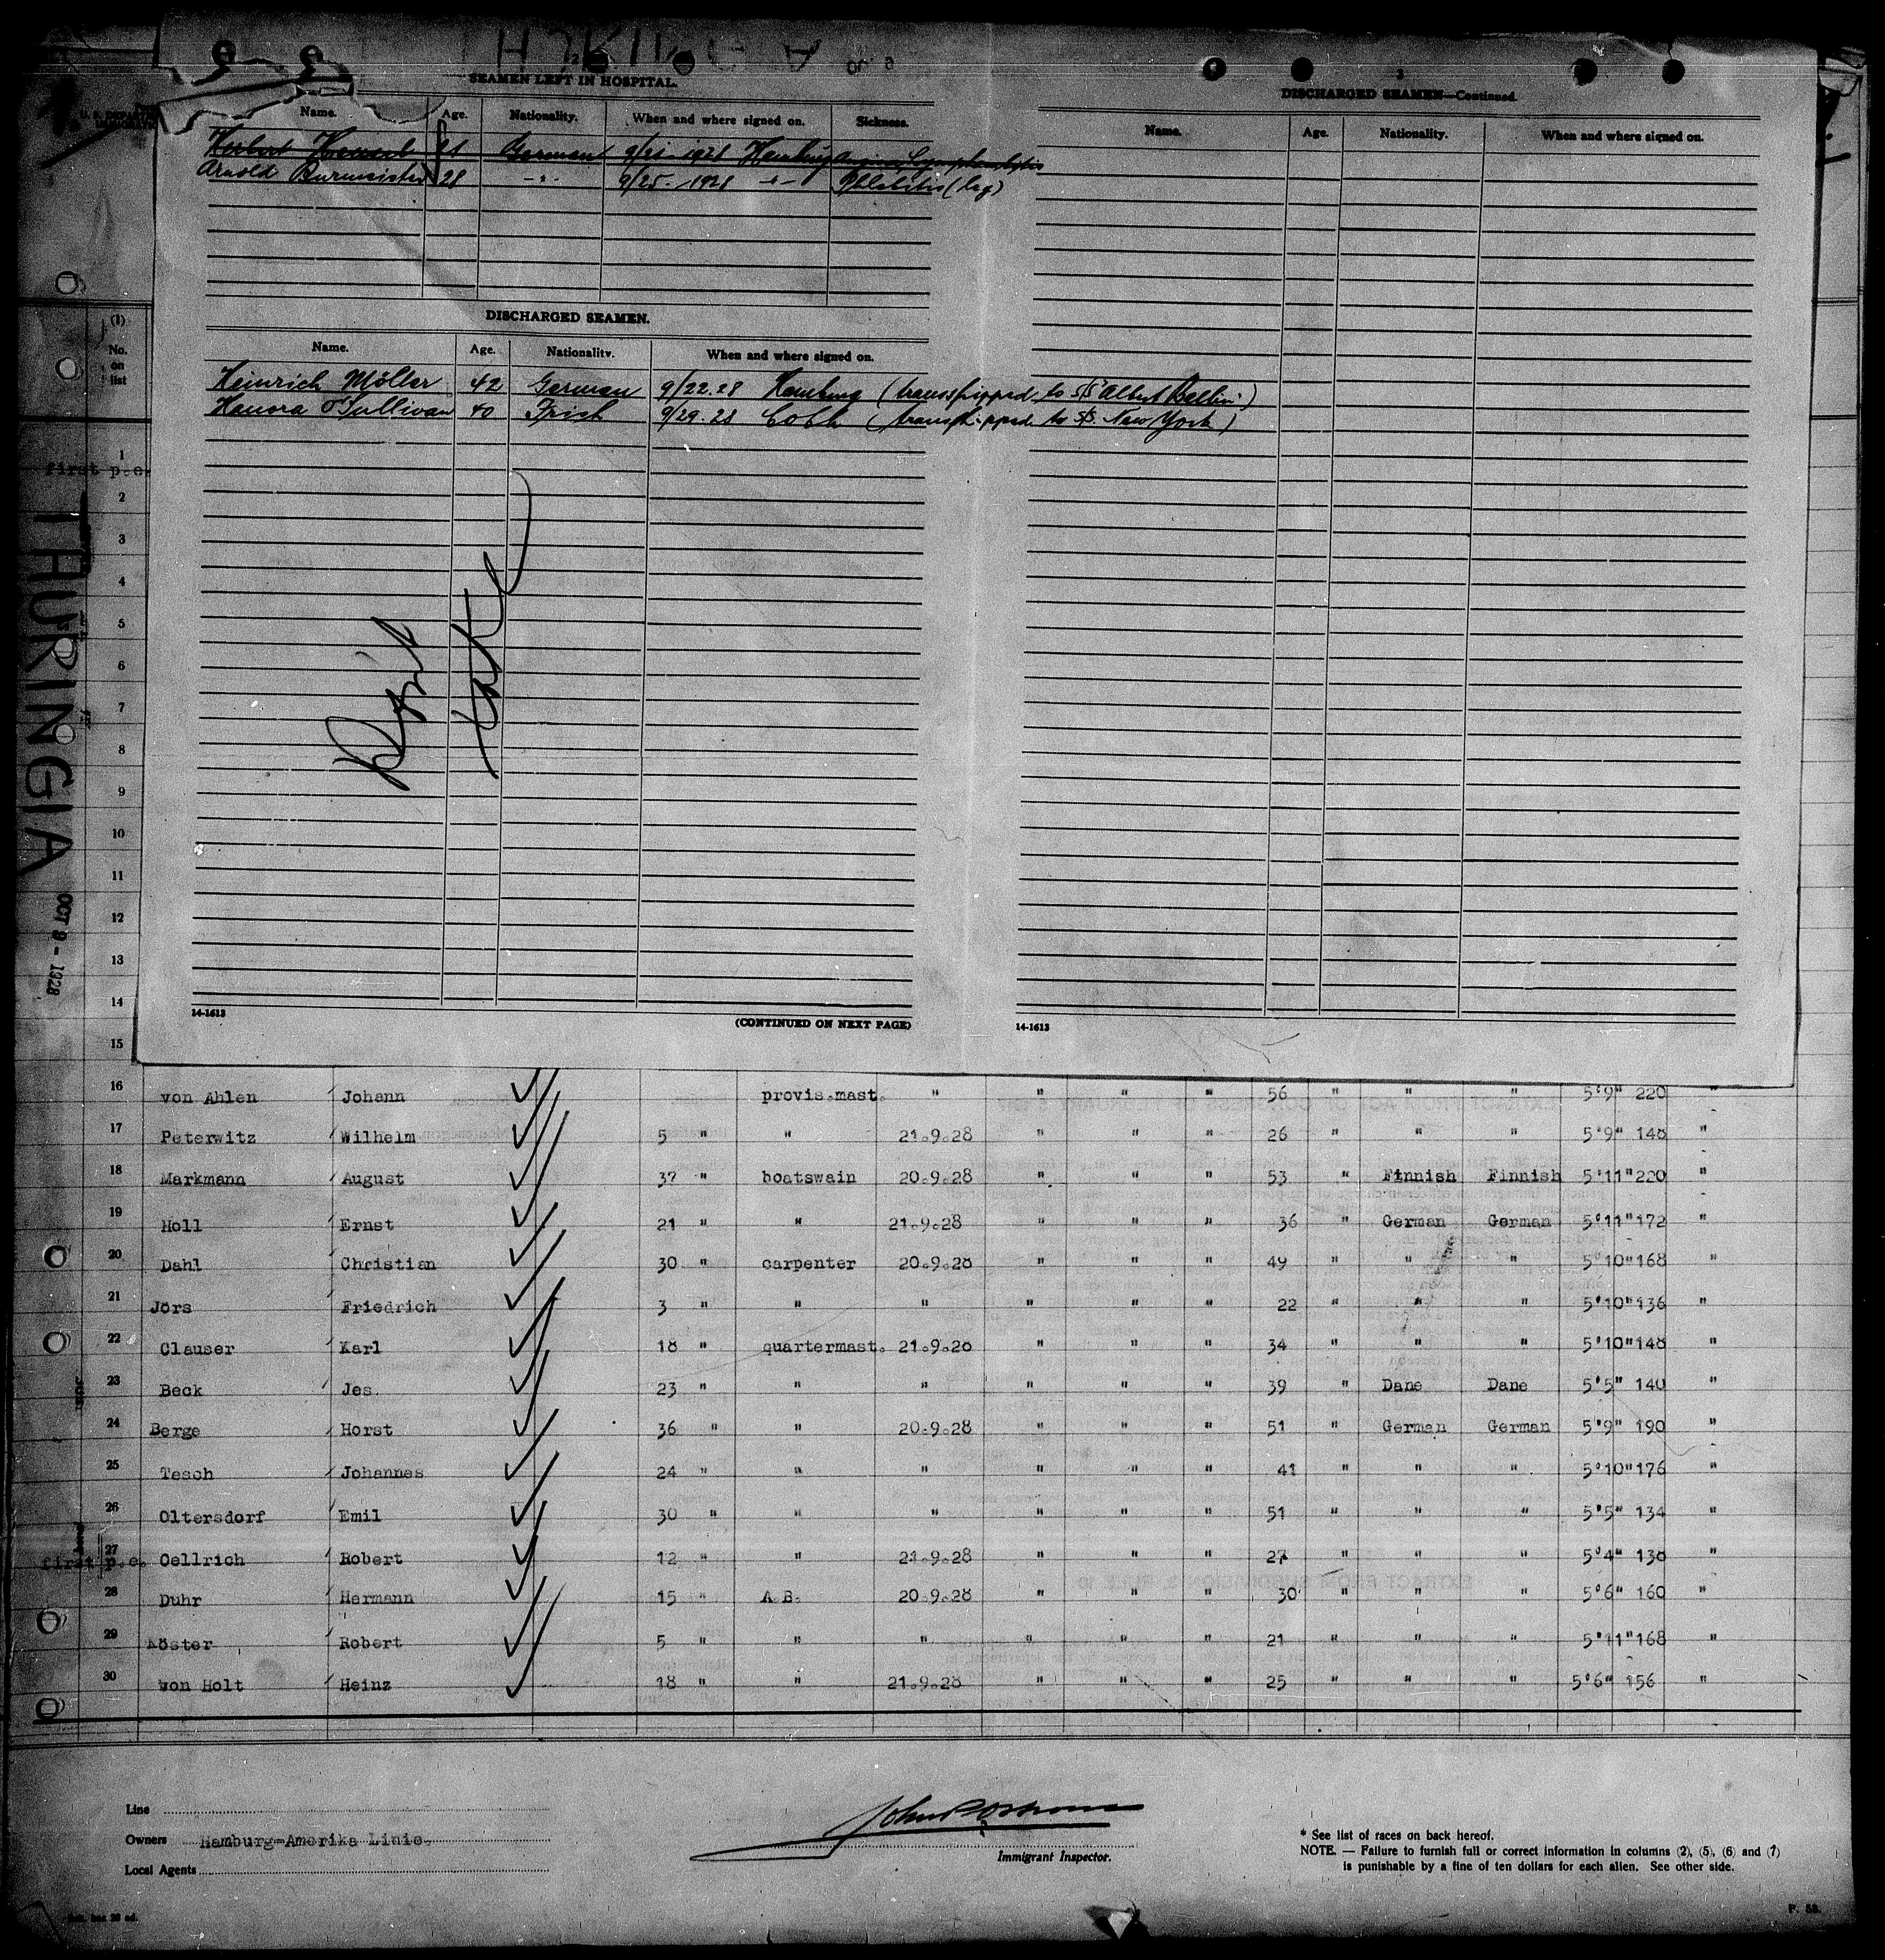 2
SEAMEN LEFT IN HOSPITAL.
Name. Age. Nationality. When and where signed on. Sickness.
Herbert 21 German 9/21-1928 Hamburg
Arnold Burmeister 28 -"- 9/25.-1928 -"- Phlebitis (leg)
DISCHARGED SEAMEN.
Name. Age. Nationality. When and where signed on.
Heinrich Möller 42 German 9/22.28 Hamburg (transshipped to S/S "Albert Ballin")
Hanora O'Sullivan 40 Irish 9/29.28 Cobh (transhipped to S/S. New York)
14-1613
(CONTINUED ON NEXT PAGE)
3
DISCHARGED SEAMEN—Continued.
Name. Age. Nationality. When and where signed on.
14-1613
THURINGIA
OCT 9 - 1928
(1)
No.
on
list
1
first p.e.
2
3
4
5
6
7
8
9
10
11
12
13
14
15
16 von Ahlen Johann provis.mast. " " " " 56 " " " 5'9" 220 "
17 Peterwitz Wilhelm 5 " " 21.9.28 " " " 26 " " " 5'9" 148 "
18 Markmann August 37 " boatswain 20.9.28 " " " 53 " Finnish Finnish 5'11" 220 "
19 Holl Ernst 21 " " 21.9.28 " " " 36 " German German 5'11" 172 "
20 Dahl Christian 30 " carpenter 20.9.28 " " " 49 " " " 5'10" 168 "
21 Jörs Friedrich 3 " " " " " " 22 " " " 5'10" 136 "
22 Clauser Karl 18 " quartermast. 21.9.28 " " " 34 " " " 5'10" 148 "
23 Beck Jes. 23 " " " " " " 39 " Dane Dane 5'5" 140 "
24 Berge Horst 36 " " 20.9.28 " " " 51 " German German 5'9" 190 "
25 Tesch Johannes 24 " " " " " " 41 " " " 5'10" 176 "
26 Oltersdorf Emil 30 " " " " " " 51 " " " 5'5" 134 "
first p.e. 27 Oellrich Robert 12 " " 21.9.28 " " " 27 " " " 5'4" 138 "
28 Duhr Hermann 15 " A.B. 20.9.28 " " " 30 " " " 5'6" 160 "
29 Köster Robert 5 " " " " " " 21 " " " 5'11" 168 "
30 von Holt Heinz 18 " " 21.9.28 " " " 25 " " " 5'6" 156 "
Line
Owners Hamburg-Amerika Linie.
Local Agents
Immigrant Inspector.
* See list of races on back hereof.
NOTE. — Failure to furnish full or correct information in columns (2), (5), (6) and (7)
is punishable by a fine of ten dollars for each alien. See other side.